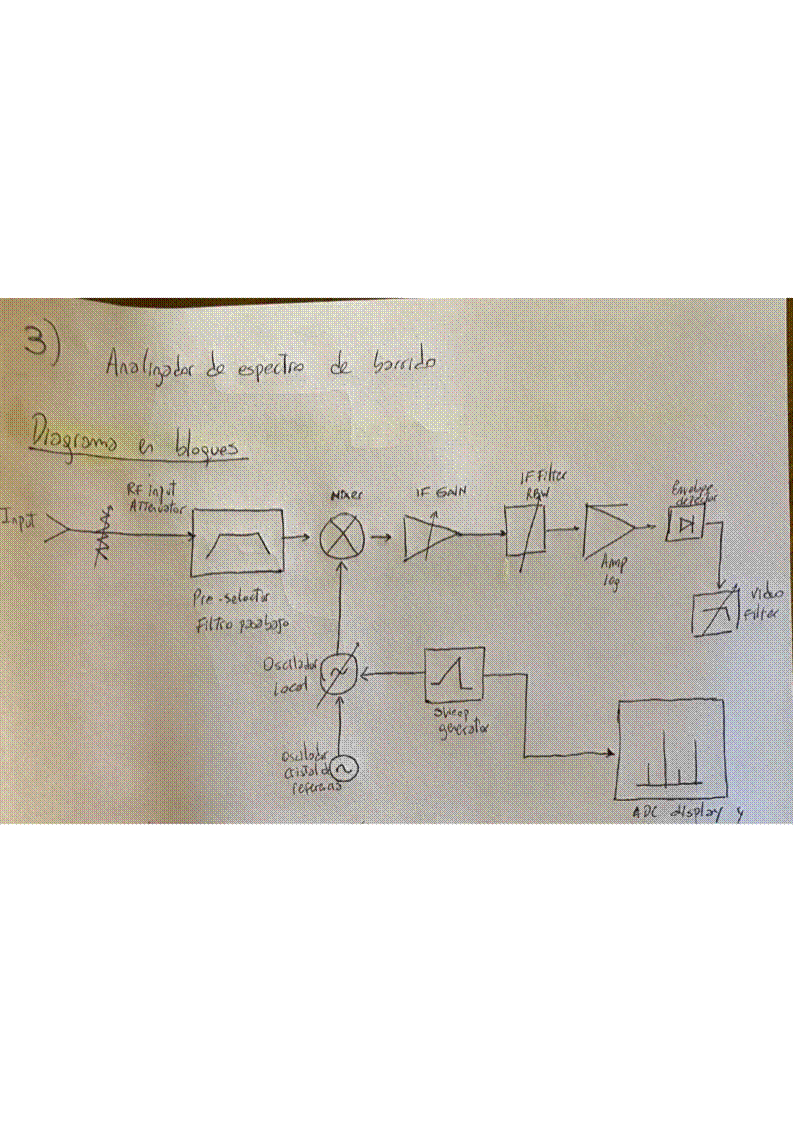 3)
Analizador de espectro de barrido
Diagrama en bloques
Input
RF input
Attenuator
Pre-selector
Filtro pasabajo
Mixer
IF GAIN
IF Filter
RBW
Amp
log
Envelope
detector
Video
Filter
Oscilador
Local
Sweep
generator
Oscilador
cristal de
referencia
ADC display y